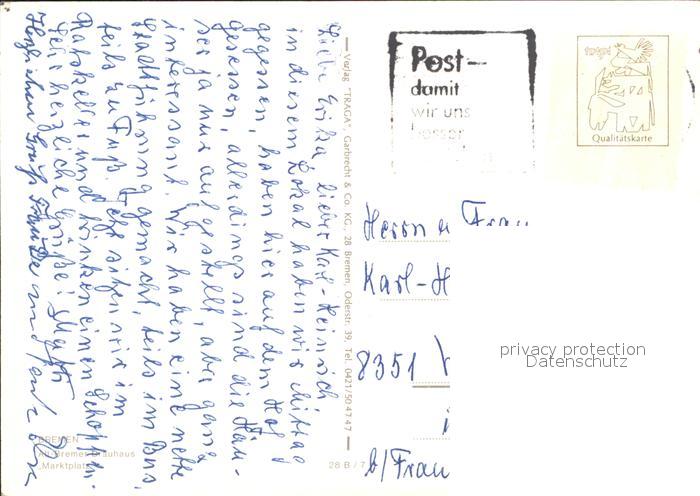 Liebe Erika, lieber Karl-Heinrich
in diesem Lokal haben wir Mittag
gegessen, haben hier auf dem Hof
gesessen, allerdings sind die Häu-
ser ja nur aufgestellt, aber ganz
interessant. Wir haben eine nette
Stadtführung gemacht, teils im Bus,
teils zu Fuß. Jetzt sitzen wir im
Ratskeller und trinken einen Schoppen.
Sehr herzliche Grüße!
Herzlichen Gruß
BREMEN
Alt Bremer Brauhaus
Marktplatz
Verlag "TRAGA", Garbrecht & Co. KG., 28 Bremen, Oderstr. 39, Tel. 0421/50 47 47
28 B / 7
Post-
damit
wir uns
besser
traga
Qualitätskarte
Herrn u Frau
Karl-H
8351
b/Frau
privacy protection
Datenschutz